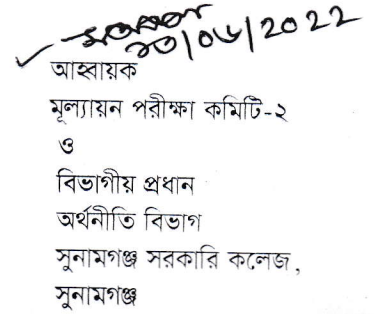 ২০/০৬/2022
আহবায়ক
মূল্যায়ন পরীক্ষা কমিটি-২
ও
বিভাগীয় প্রধান
অর্থনীতি বিভাগ
সুনামগঞ্জ সরকারি কলেজ,
সুনামগঞ্জ